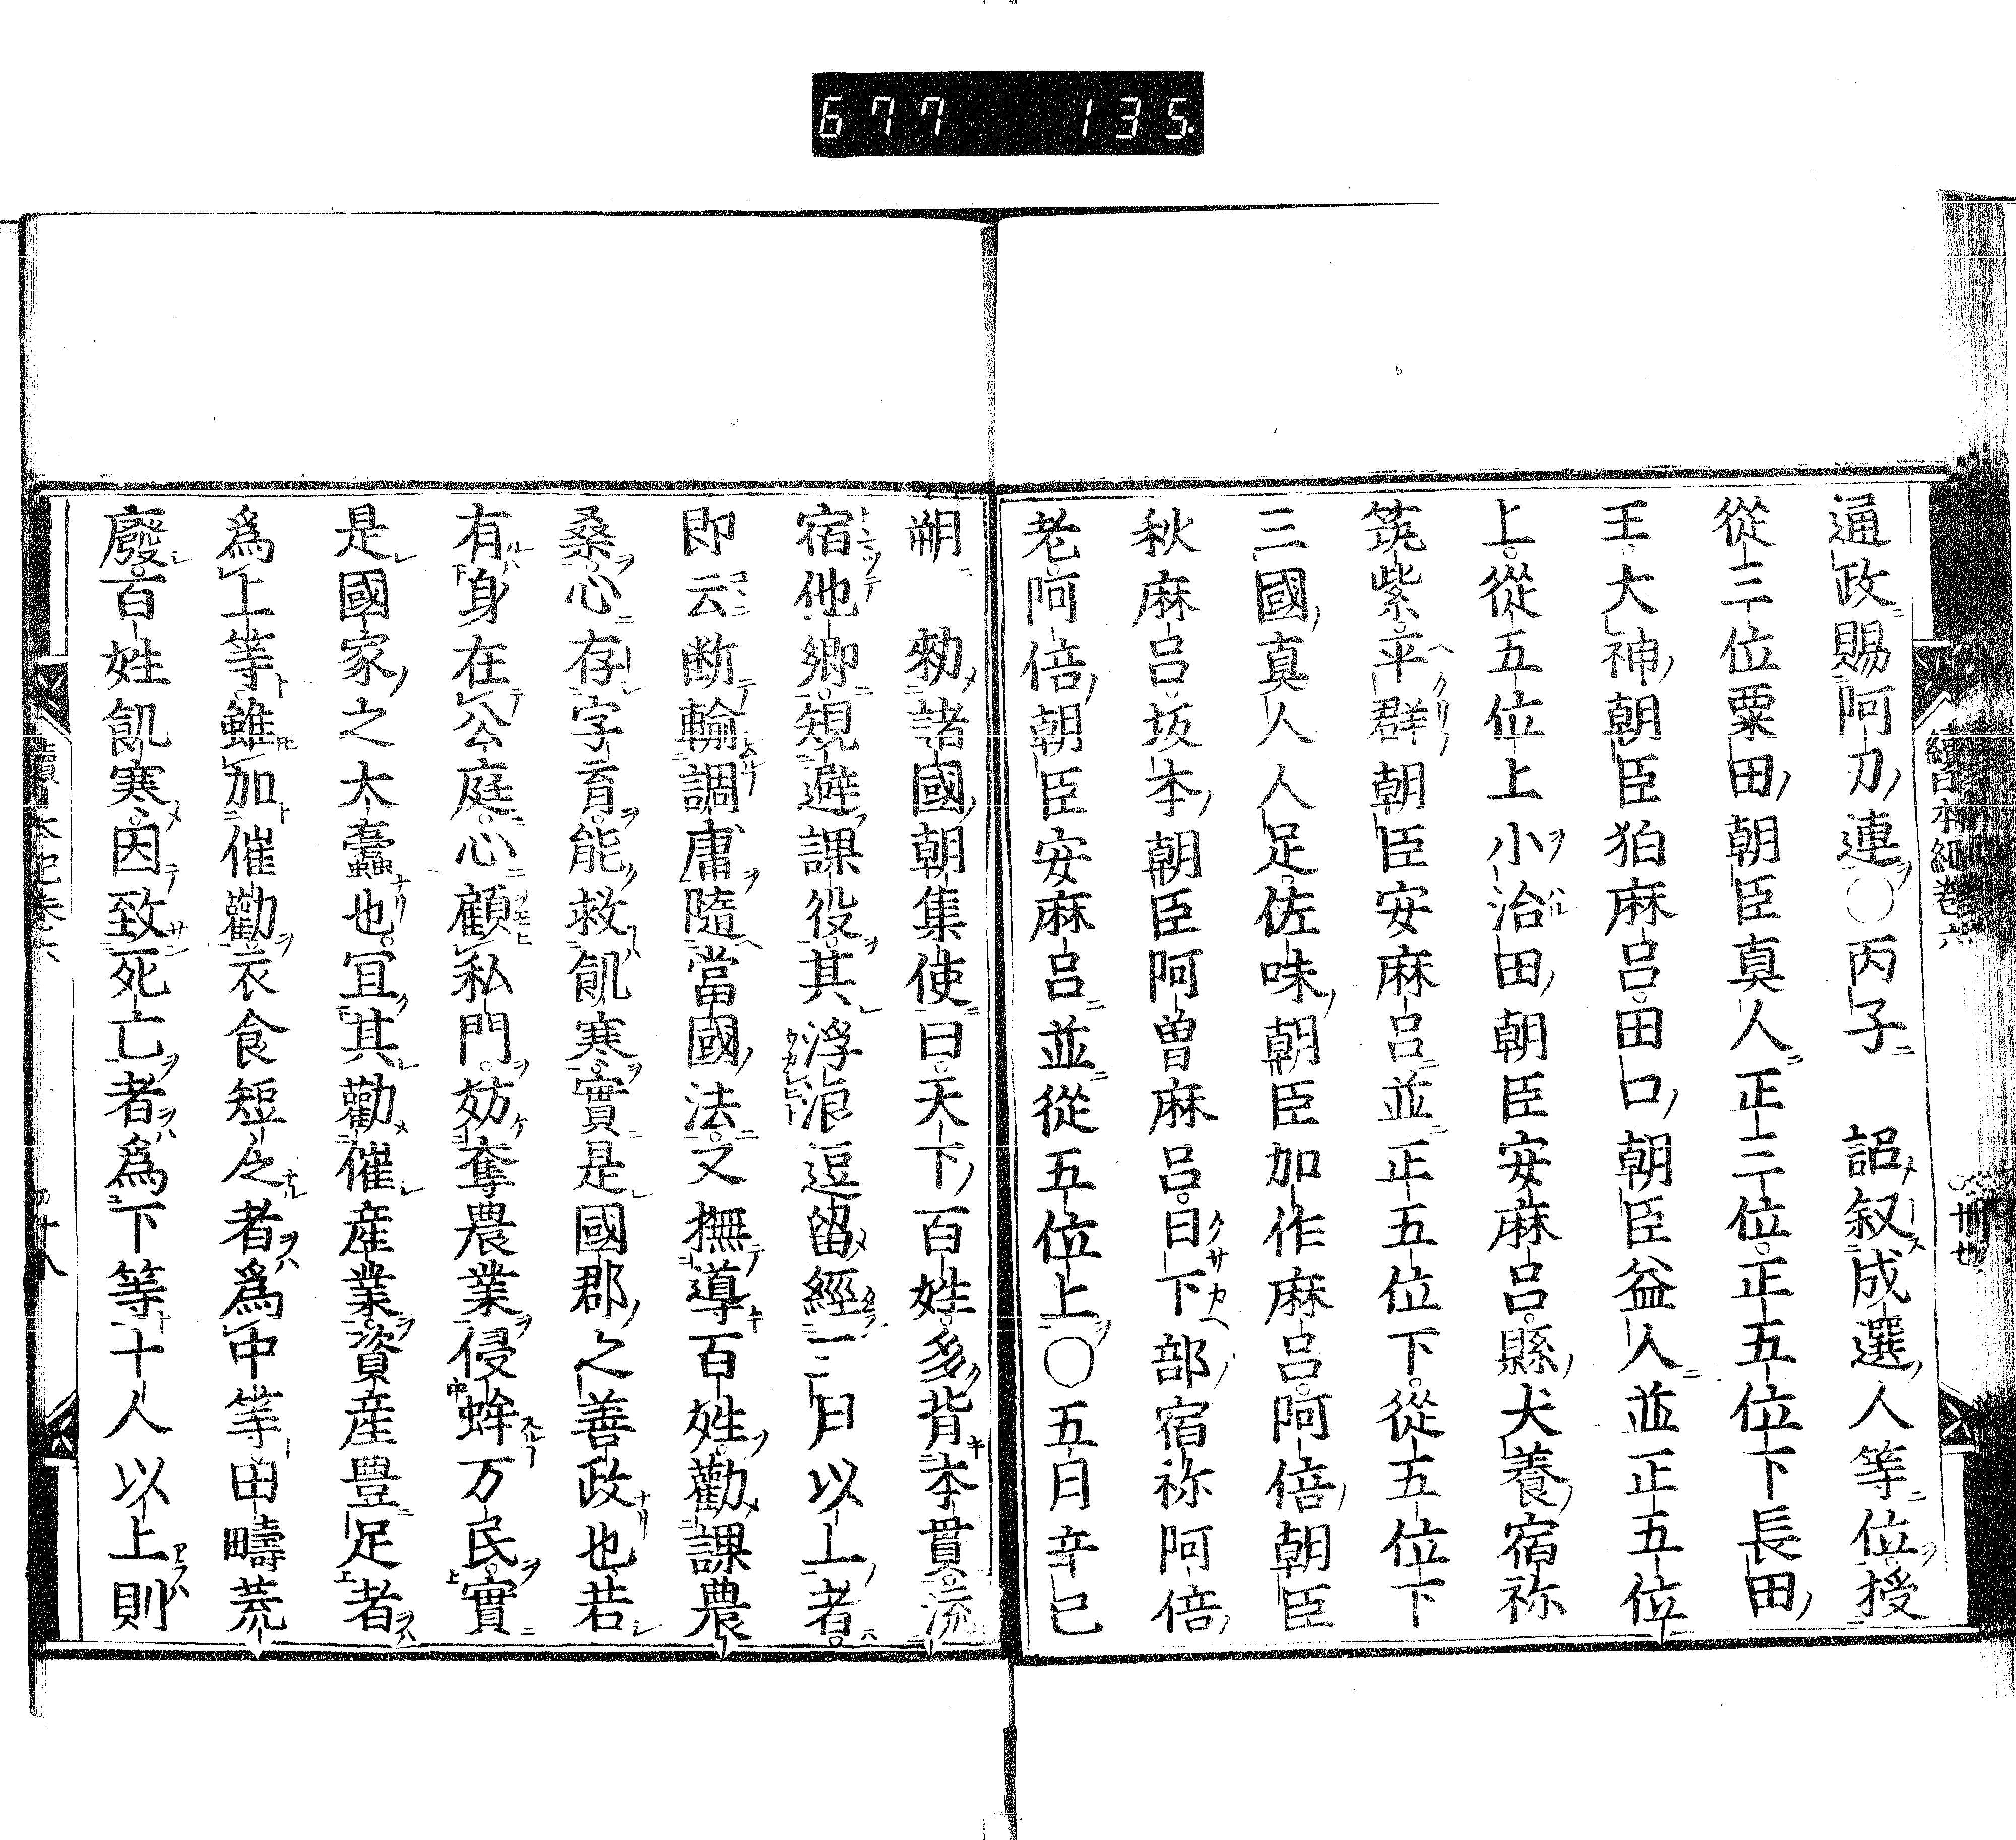 677 135.
續日本紀卷六
通政賜阿刀連○丙子 詔叙成選人等位授
從三位粟田朝臣真人正三位正五位下長田
王大神朝臣狛麻呂田口朝臣益人並正五位
上從五位上小治田朝臣安麻呂縣犬養宿祢
筑紫平群朝臣安麻呂並正五位下從五位下
三國真人人足佐味朝臣加作麻呂阿倍朝臣
秋麻呂坂本朝臣阿曽麻呂日下部宿祢阿倍
老阿倍朝臣安麻呂並從五位上○五月辛巳
朔 勑諸國朝集使曰天下百姓多背本貫流
宿他鄉規避課役其浮浪逗留經三月以上者
即云断輸調庸隨當國法又撫導百姓勸課農
桑心存字育能救飢寒實是國郡之善政也若
有身在公庭心顧私門妨奪農業侵蛑万民實
是國家之大蠹也宜其勸催産業資産豊足者
爲上等雖加催勸衣食短乏者爲中等田疇荒
廢百姓飢寒因致死亡者爲下等十人以上則